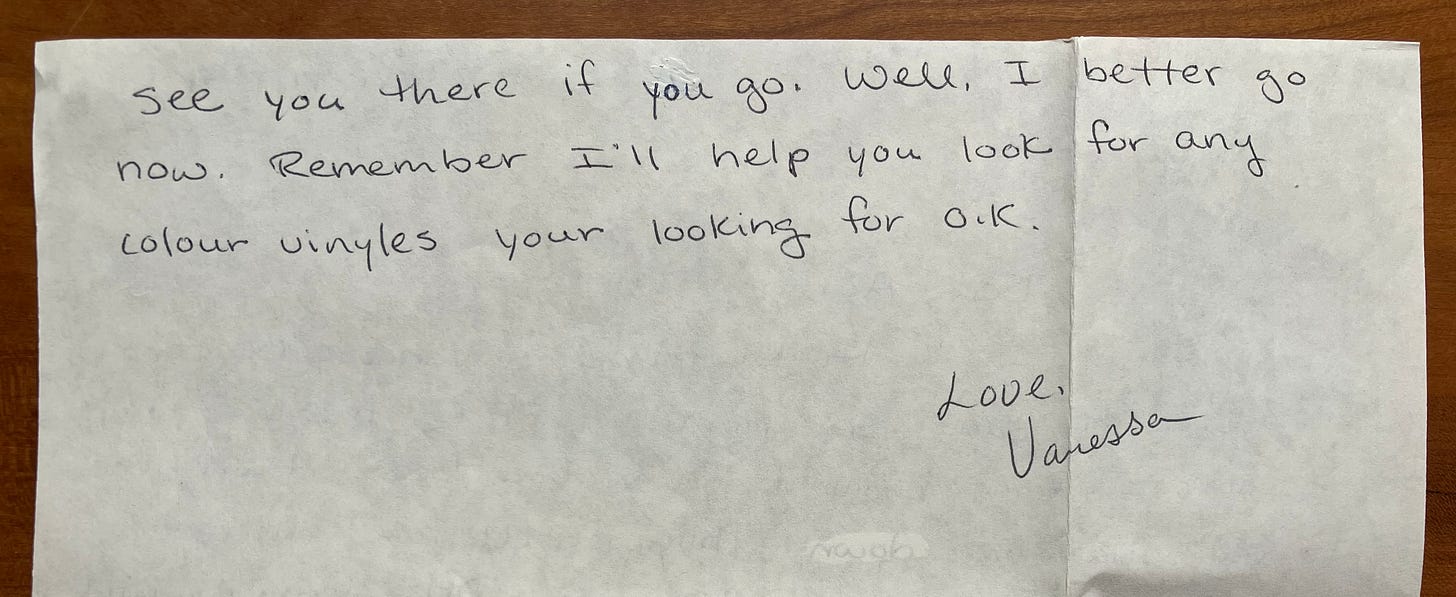 see you there if you go. Well, I better go
now. Remember I'll help you look for any
colour vinyles your looking for o.k.
Love,
Vanessa